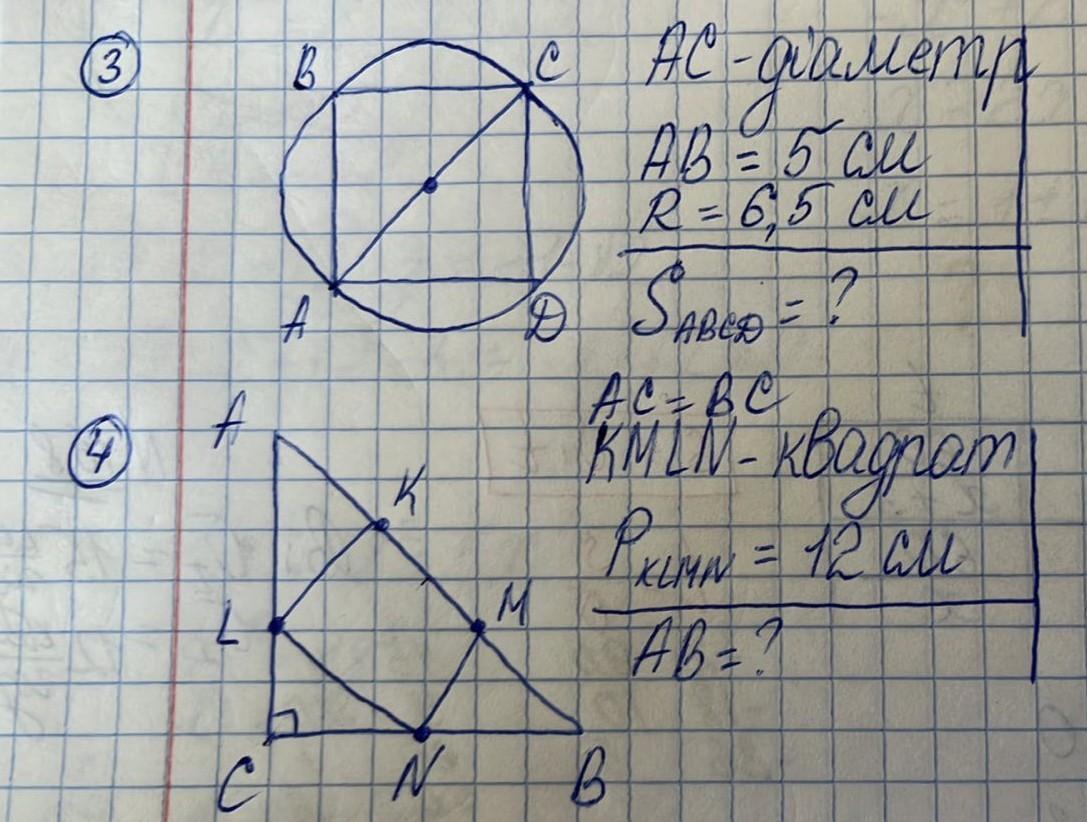 3
B
C
A
D
AC - діаметр
AB = 5 см
R = 6,5 см
S ABCD = ?
4
A
K
L
M
C
N
B
AC = BC
KMLN - квадрат
P KLMN = 12 см
AB = ?